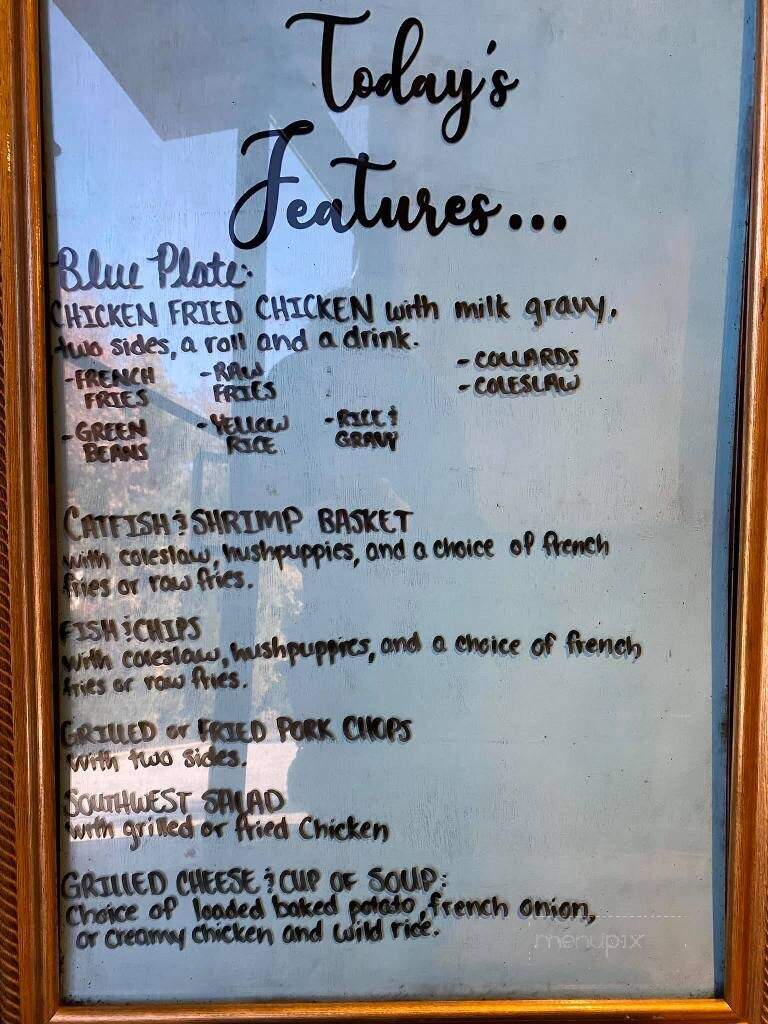 Today's
Features...
Blue Plate:
CHICKEN FRIED CHICKEN with milk gravy,
two sides, a roll and a drink.
-FRENCH FRIES
-RAW FRIES
-COLLARDS
-COLESLAW
-GREEN BEANS
-YELLOW RICE
-RICE & GRAVY
CATFISH & SHRIMP BASKET
with coleslaw, hushpuppies, and a choice of french
fries or raw fries.
FISH & CHIPS
with coleslaw, hushpuppies, and a choice of french
fries or raw fries.
GRILLED or FRIED PORK CHOPS
with two sides.
SOUTHWEST SALAD
with grilled or fried Chicken
GRILLED CHEESE & CUP OF SOUP:
Choice of loaded baked potato, french onion,
or creamy chicken and wild rice.
menupix